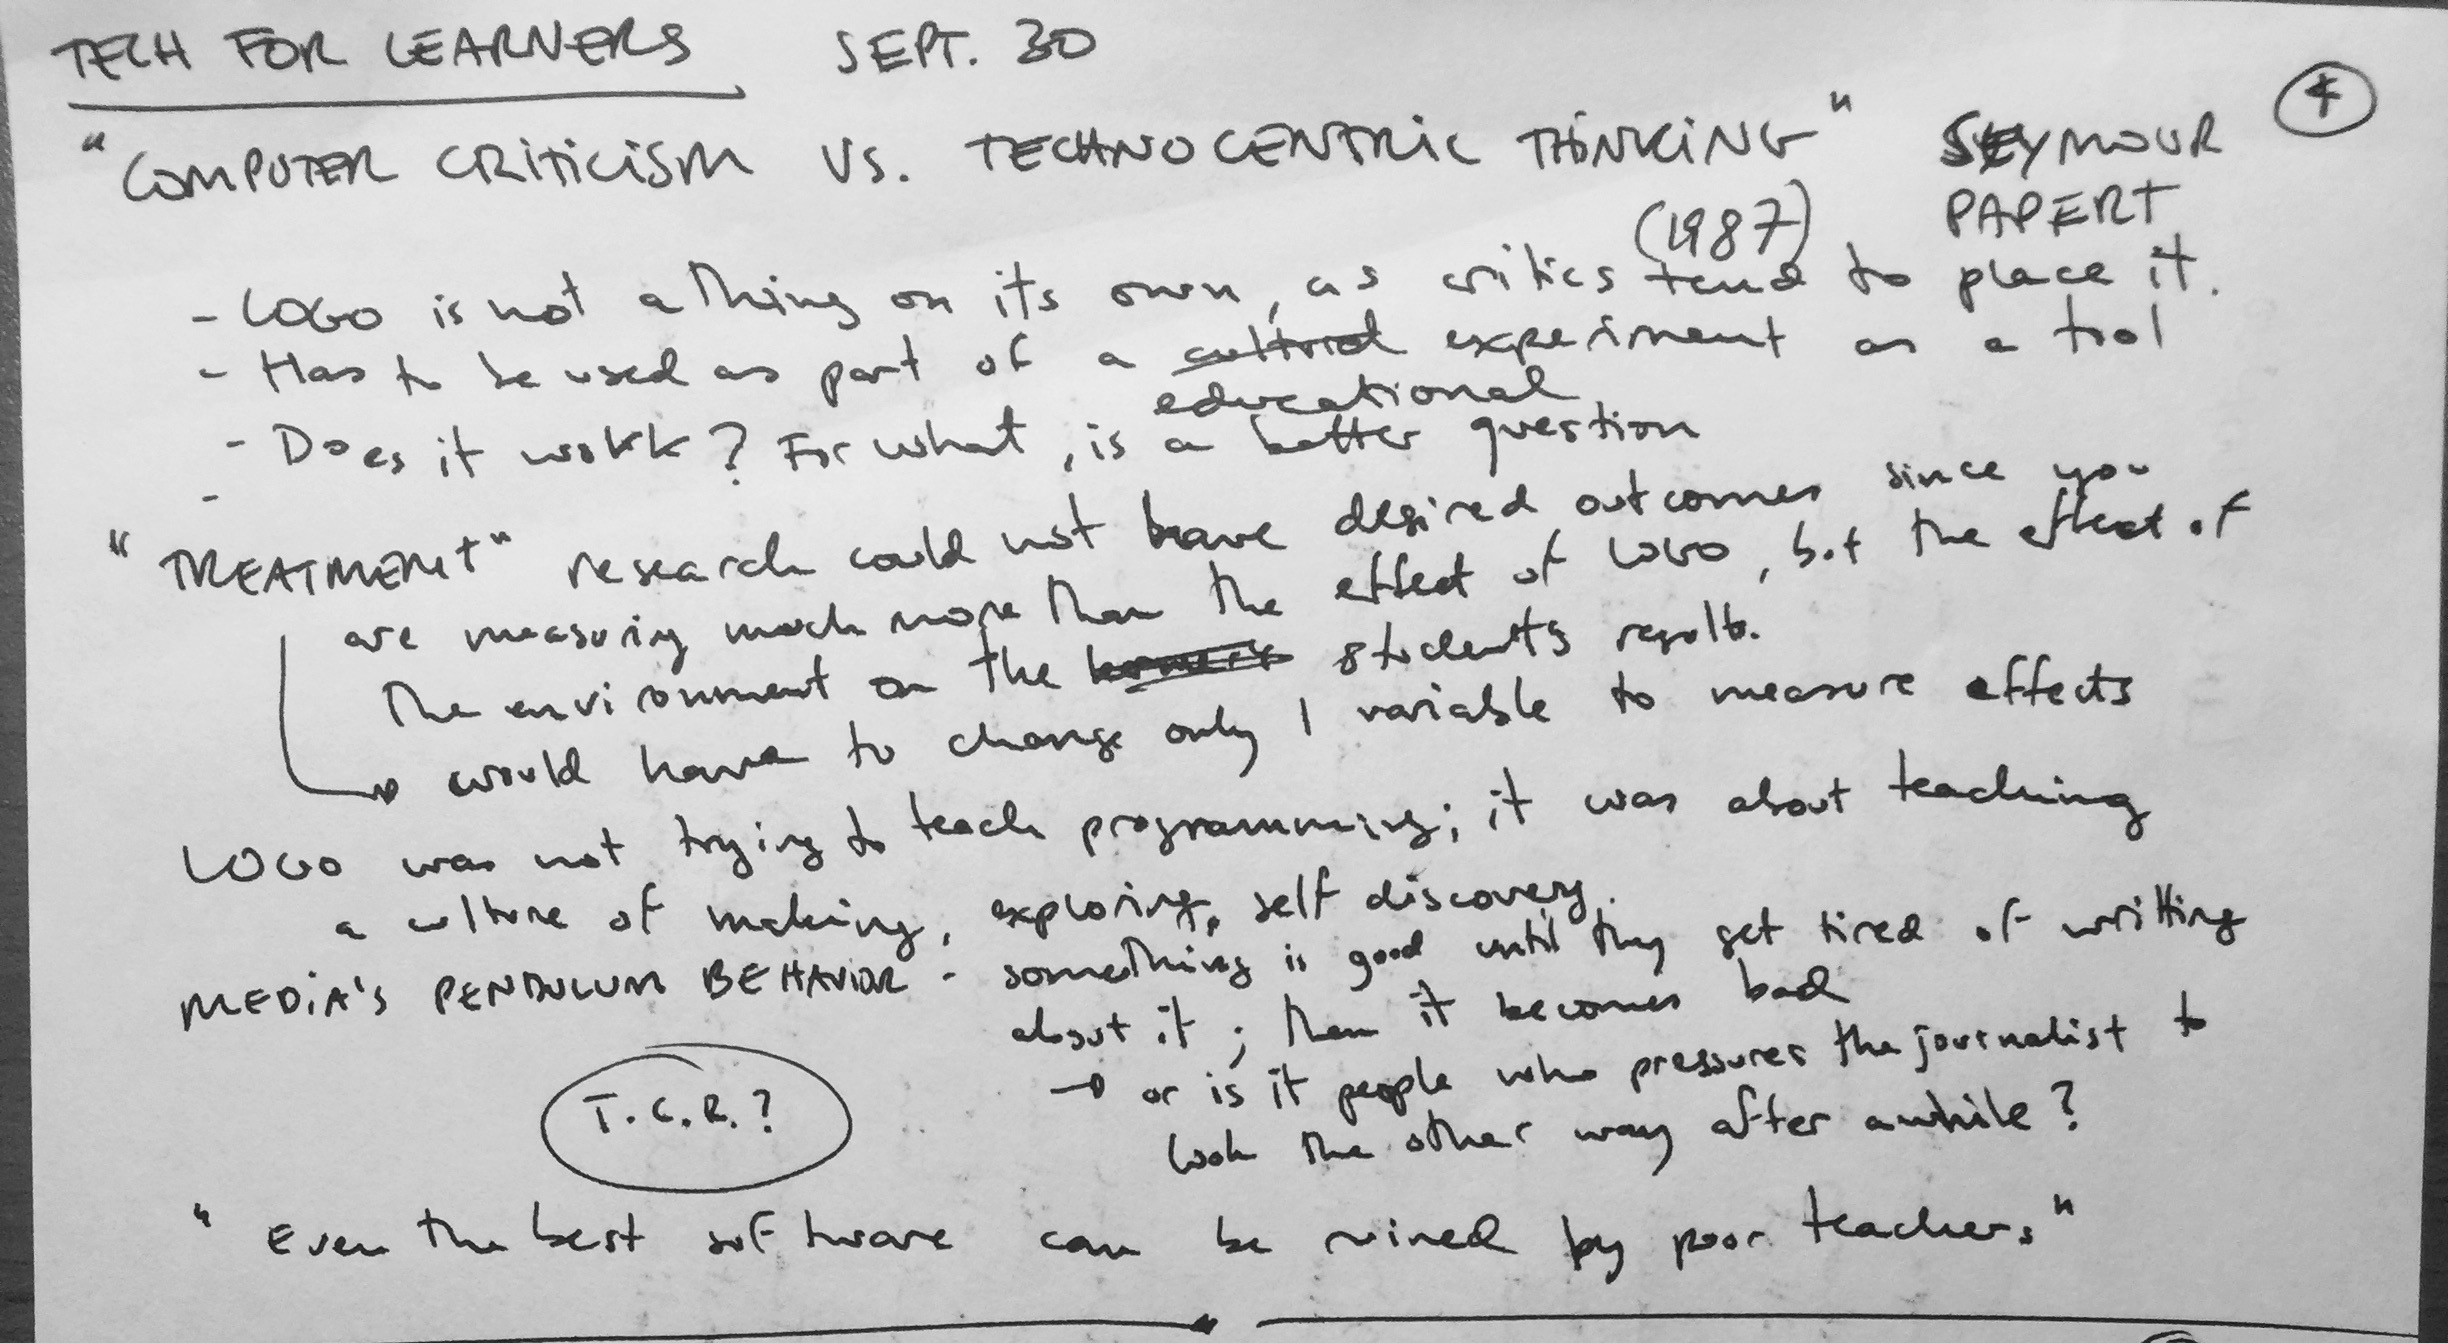 TECH FOR LEARNERS SEPT. 30
4
"COMPUTER CRITICISM VS. TECHNOCENTRIC THINKING" SEYMOUR
(1987) PAPERT
- LOGO is not a thing on its own, as critics tend to place it.
- Has to be used as part of a cultural experiment as a tool
educational
- Does it wokk? For what, is a better question
-
"TREATMENT" research could not have desired outcomes since you
are measuring much more than the effect of LOGO, but the effect of
the environment on the students results.
→ would have to change only 1 variable to measure effects
LOGO was not trying to teach programming; it was about teaching
a culture of making, exploring, self discovery.
MEDIA'S PENDULUM BEHAVIOR - something is good until they get tired of writting
about it; then it becomes bad
→ or is it people who pressures the journalist to
look the other way after awhile?
T.C.R.?
"Even the best software can be ruined by poor teachers"